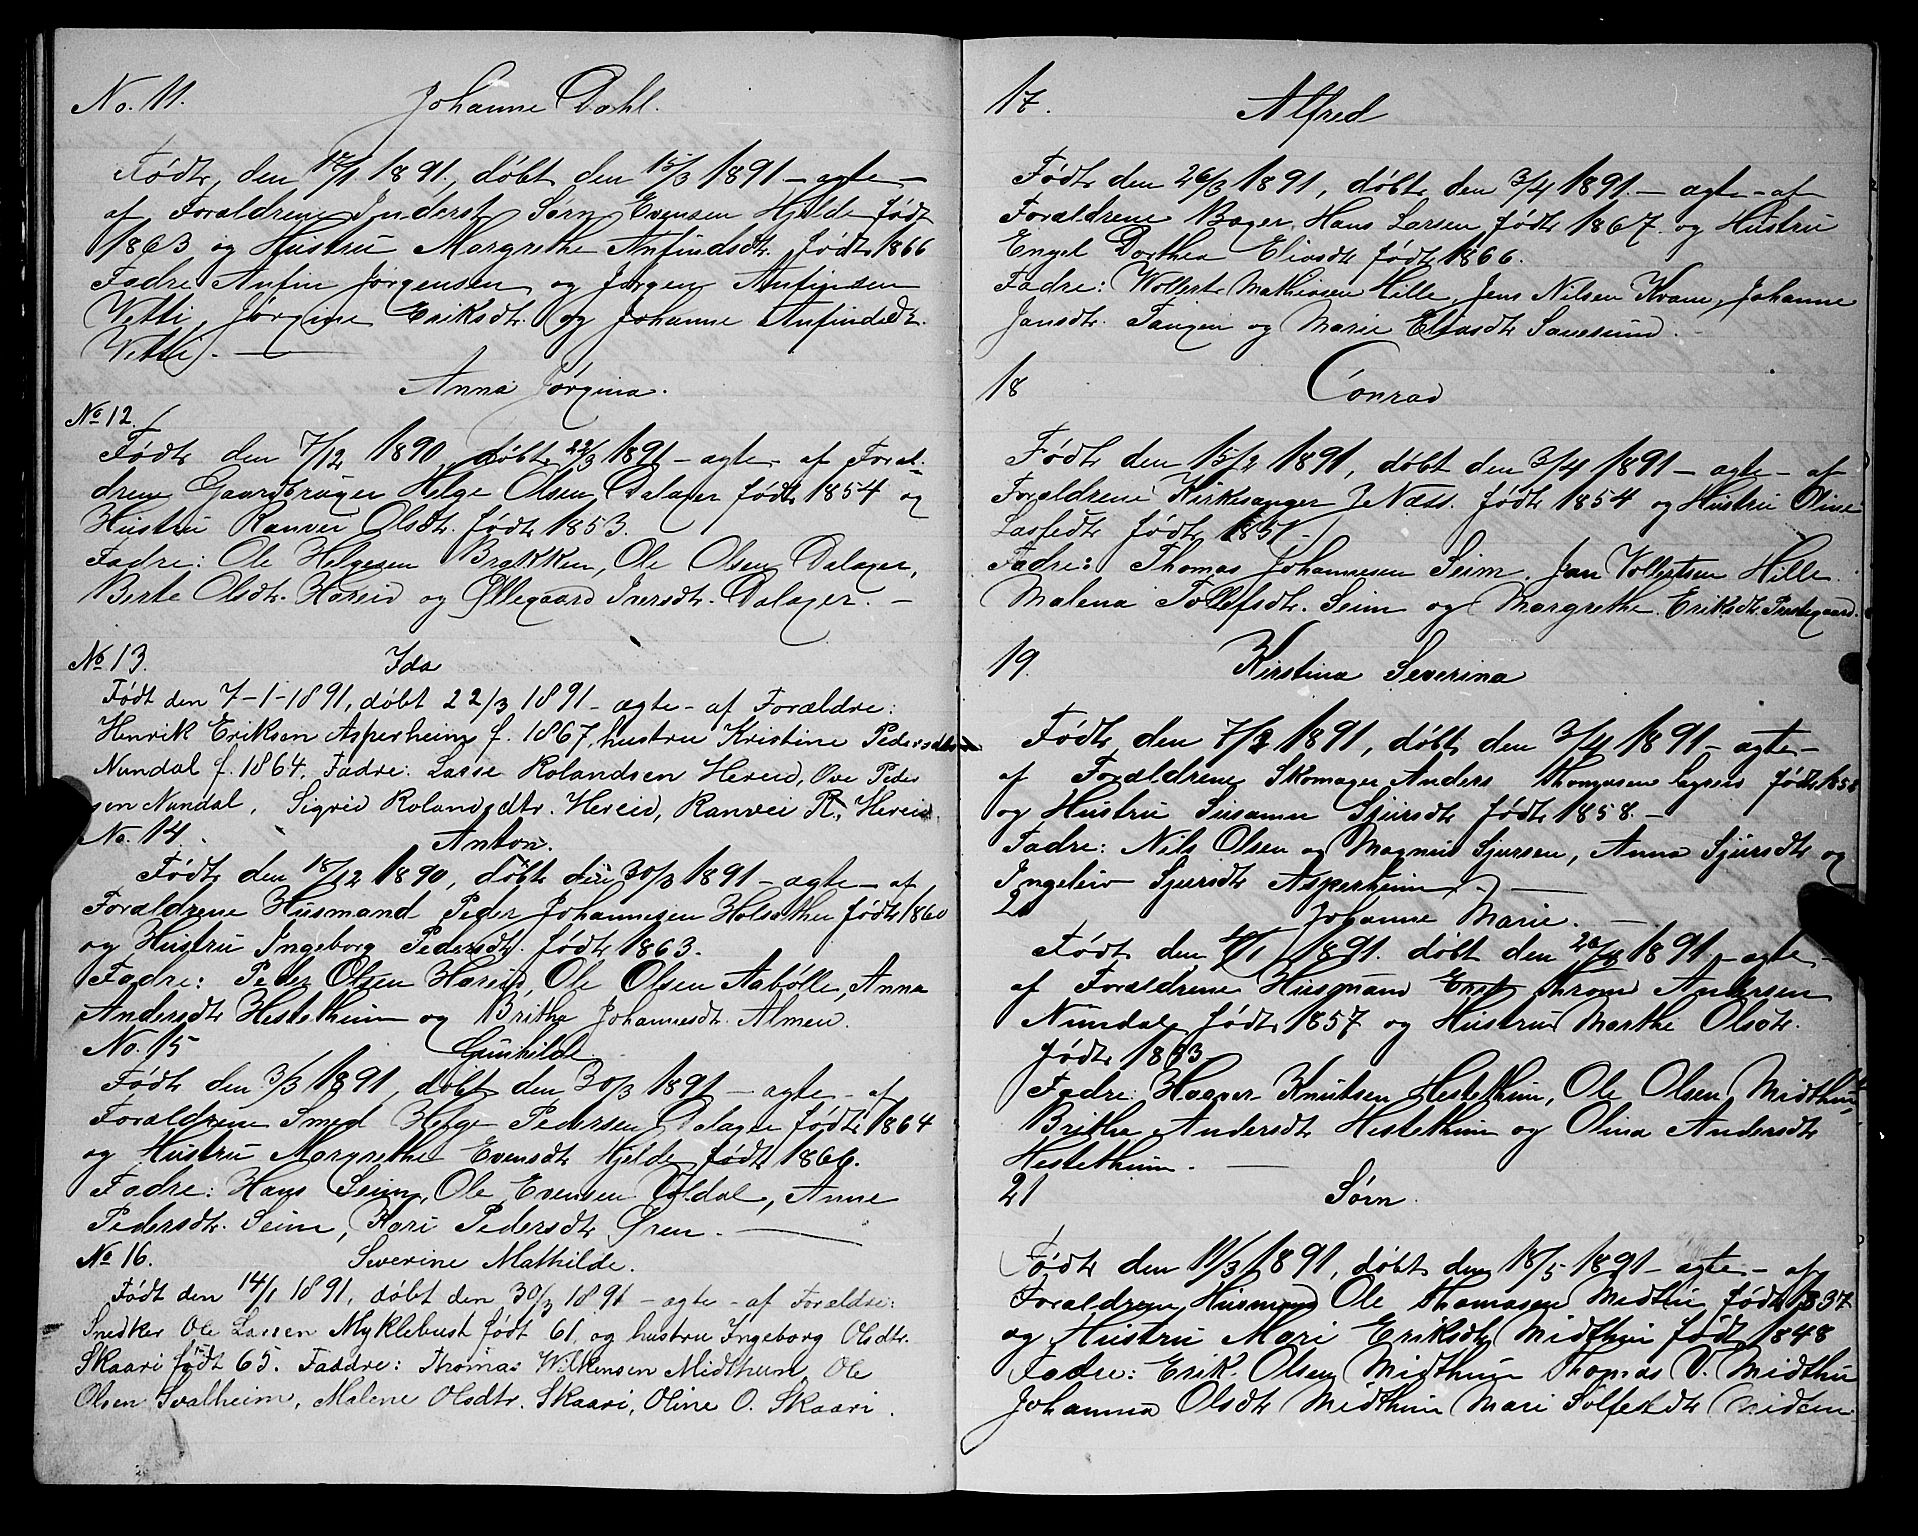 No. 11. Johanne Dahl.
Født, den 17/1 1891, døbt den 15/3 1891 - ægte -
af Forældrene Inderst Sørn Evensen Hjelde født
1863 og Hustru Margrethe Anfindsdt. født 1866
Fadre Anfin Jørgensen og Jørgen Anfindsen
Vetti, Jørgine Eriksdt. og Johanne Anfindsdt.
Vetti. -
Anna Jørgina.
No 12.
Født den 7/12 1890 døbt 22/3 1891 - ægte - af Foræl-
drene Gaardbruger Helge Olsen Dalager født 1854 og
Hustru Ranvei Olsdt. født 1853.
Fadre: Ole Helgesen Brækken, Ole Olsen Dalager,
Berte Olsdt. Hæreid og Øllegaard Iversdt. Dalager. -
No 13. Ida
Født den 7-1-1891, døbt 22/3 1891 - ægte - af Forældre:
Henrik Eriksen Asperheim f. 1867, hustru Kristine Pedersdtr
Nundal f. 1864. Fadre: Lasse Rolandsen Hereid, Ove Peder
sen Nundal, Sigrid Rolandsdtr. Hereid, Ranvei R. Hereid.
No. 14. Anton.
Født den 18/12 1890, døbt den 30/3 1891 - ægte - af
Forældrene Husmand Peder Johannesen Holsæther født 1860
og Hustru Ingeborg Pedersdt. født 1863.
Fadre: Peder Olsen Hæreid, Ole Olsen Aabølle, Anna
Andersdt Hestethuun og Britha Johannesdt. Almen.
No. 15 Gunhilde
Født den 3/3 1891, døbt den 30/3 1891 - ægte - af
Forældrene Smed Helge Pedersen Dalager født 1864
og Hustru Margrethe Evensdt Hjelde født 1866.
Fadre: Hans Seim, Ole Evensen Voldal, Anne
Pedersdt. Seim, Kari Pedersdt Øren. -
No 16. Severine Mathilde.
Født den 14/1 1891, døbt den 30/3 1891 - ægte - af Forældre:
Snedker Ole Lassen Myklebust født 61, og hustru Ingeborg Olsdtr.
Skaari født 65. Faddre: Thomas Wilkensen Midthun, Ole
Olsen Svalheim, Malene Olsdtr. Skaari, Oline O. Skaari.
17. Alfred
Født den 26/3 1891, døbt den 3/4 1891. - ægte - af
Forældrene Bager Hans Larsen født 1867. og Hustru
Engel Dorthea Eliasdt født 1866.
Fadre: Wollert Mathiasen Hille, Jens Nilsen Kvam, Johanne
Jansdt. Tangen og Marie Eliasdt Sauesund.
18 Conrad
Født den 15/2 1891, døbt den 3/4 1891 - ægte - af
Forældrene Kirkesanger J. Næss. født 1854 og Hustru Oline
Lassedt født 1851 -
Fadre: Thomas Johannesen Seim, Jan Vollertsen Hille.
Malena Tollefsdt. Seim og Margrethe Eriksdt. Prestegaard.
19. Kirstina Severina
Født den 7/2 1891, døbt den 3/4 1891 - ægte -
af Forældrene Skomager Anders Thomasen født 1858
og Hustru Susanne Sjursdt født 1858. -
Fadre: Nils Olsen og Magnus Sjursen, Anna Sjursdt og
Ingeleiv Sjursdt Asperheim. -
Johanne Marie. -
Født den 1891. døbt den 1891 - ægte -
af Forældrene Husmand Andersen
Nundal født 1857 og Hustru Marthe Olsdt.
født
Fadre: Haaver Knutsen Hestethun, Ole Olsen Midthun,
Brithe Andersdt Hestethun og Olina Andersdt
Hestethun. -
21 Sørn.
Født den 11/3 1891, døbt den 18/5 1891 - ægte - af
Forældrene Husmand Ole Thomasen Midthu født 1837
og Hustru Mari Eriksdt Midthun født 1848
Fadre: Erik Olsen Midthun Thomas V. Midthu
Johanna Olsdt Midthun Mari Solfestdt